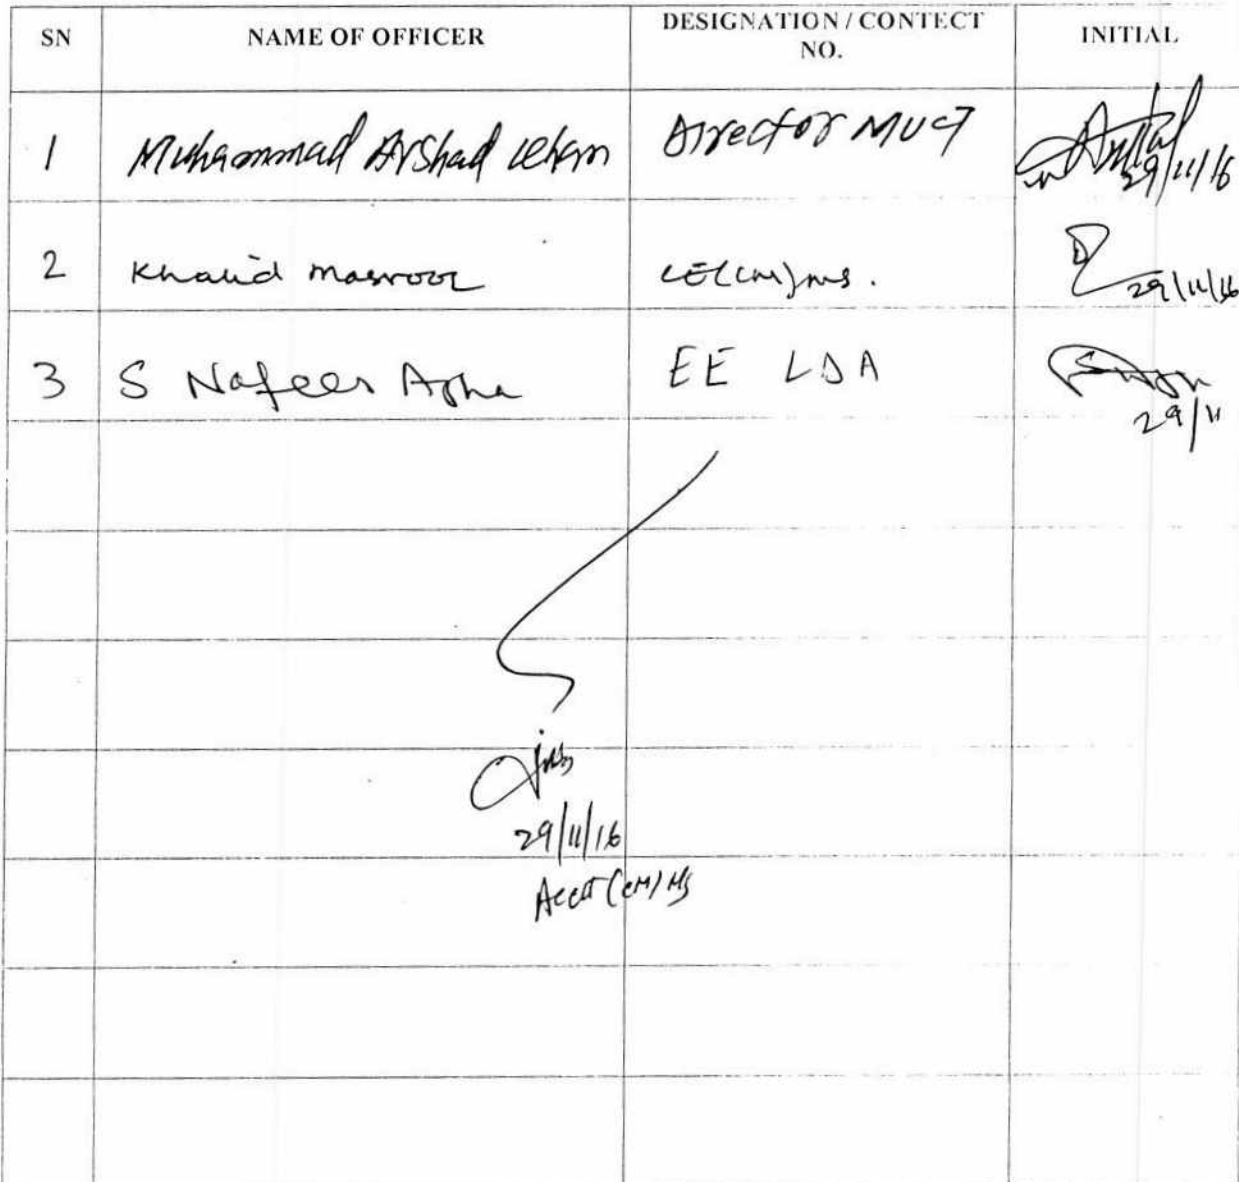 SN NAME OF OFFICER DESIGNATION / CONTECT NO. INITIAL
1 Muhammad Arshad Khan Director MUCT 29/11/16
2 Khalid Masroor CE(CM)MS. 29/11/16
3 S Nafees Agha EE LDA 29/11
29/11/16
Acctt (CM) MS